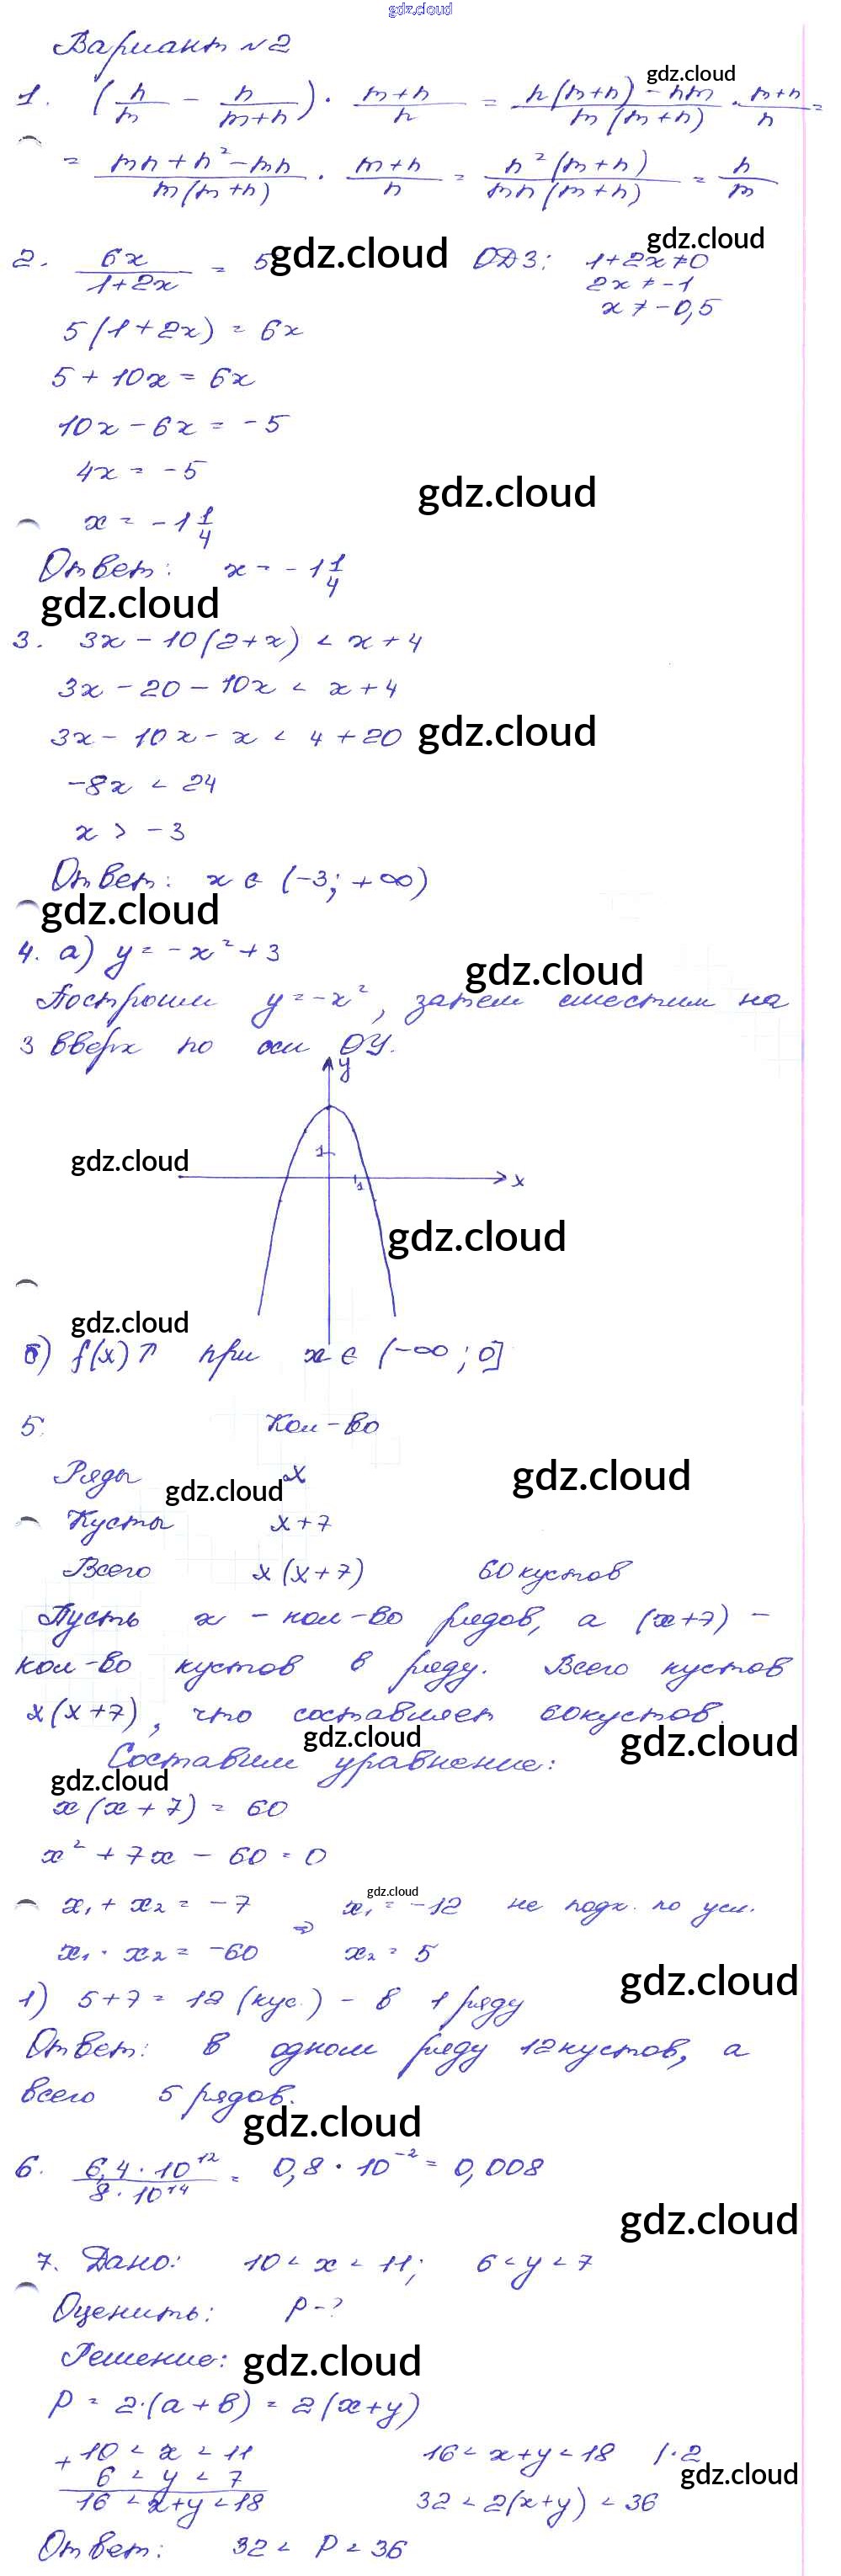 gdz.cloud
Вариант №2
gdz.cloud
1. (n/m - n/(m+n)) · (m+n)/n = (n(m+n) - nm)/(m(m+n)) · (m+n)/n =
= (mn+n²-mn)/(m(m+n)) · (m+n)/n = n²(m+n)/(mn(m+n)) = n/m
gdz.cloud
2. 6x/(1+2x) = 5 gdz.cloud ОДЗ: 1+2x≠0
2x ≠ -1
x ≠ -0,5
5(1+2x) = 6x
5 + 10x = 6x
10x - 6x = -5
4x = -5
gdz.cloud
x = -1 1/4
Ответ: x = -1 1/4
gdz.cloud
3. 3x - 10(2+x) < x+4
3x - 20 - 10x < x+4
3x - 10x - x < 4 + 20 gdz.cloud
-8x < 24
x > -3
Ответ: x ∈ (-3; +∞)
gdz.cloud
4. а) y = -x² + 3
gdz.cloud
Построим y = -x², затем сместим на
3 вверх по оси OY.
y
1
gdz.cloud
1 x
gdz.cloud
gdz.cloud
б) f(x)↑ при x ∈ (-∞; 0]
5. Кол-во
Ряды x gdz.cloud
gdz.cloud
Кусты x+7
Всего x(x+7) 60 кустов
Пусть x - кол-во рядов, а (x+7) -
кол-во кустов в ряду. Всего кустов
x(x+7), что составляет 60 кустов.
gdz.cloud gdz.cloud
Составим уравнение:
gdz.cloud
x(x+7) = 60
x² + 7x - 60 = 0
gdz.cloud
x₁ + x₂ = -7 ⇒ x₁ = -12 не подх. по усл.
x₁ · x₂ = -60 x₂ = 5
gdz.cloud
1) 5+7 = 12 (кус.) - в 1 ряду
Ответ: в одном ряду 12 кустов, а
всего 5 рядов.
gdz.cloud
6. 6,4 · 10¹²/(8 · 10¹⁴) = 0,8 · 10⁻² = 0,008
gdz.cloud
7. Дано: 10 < x < 11; 6 < y < 7
Оценить: P - ?
Решение: gdz.cloud
P = 2·(a+b) = 2(x+y)
+ 10 < x < 11 16 < x+y < 18 |·2
6 < y < 7 gdz.cloud
16 < x+y < 18 32 < 2(x+y) < 36
Ответ: 32 < P < 36